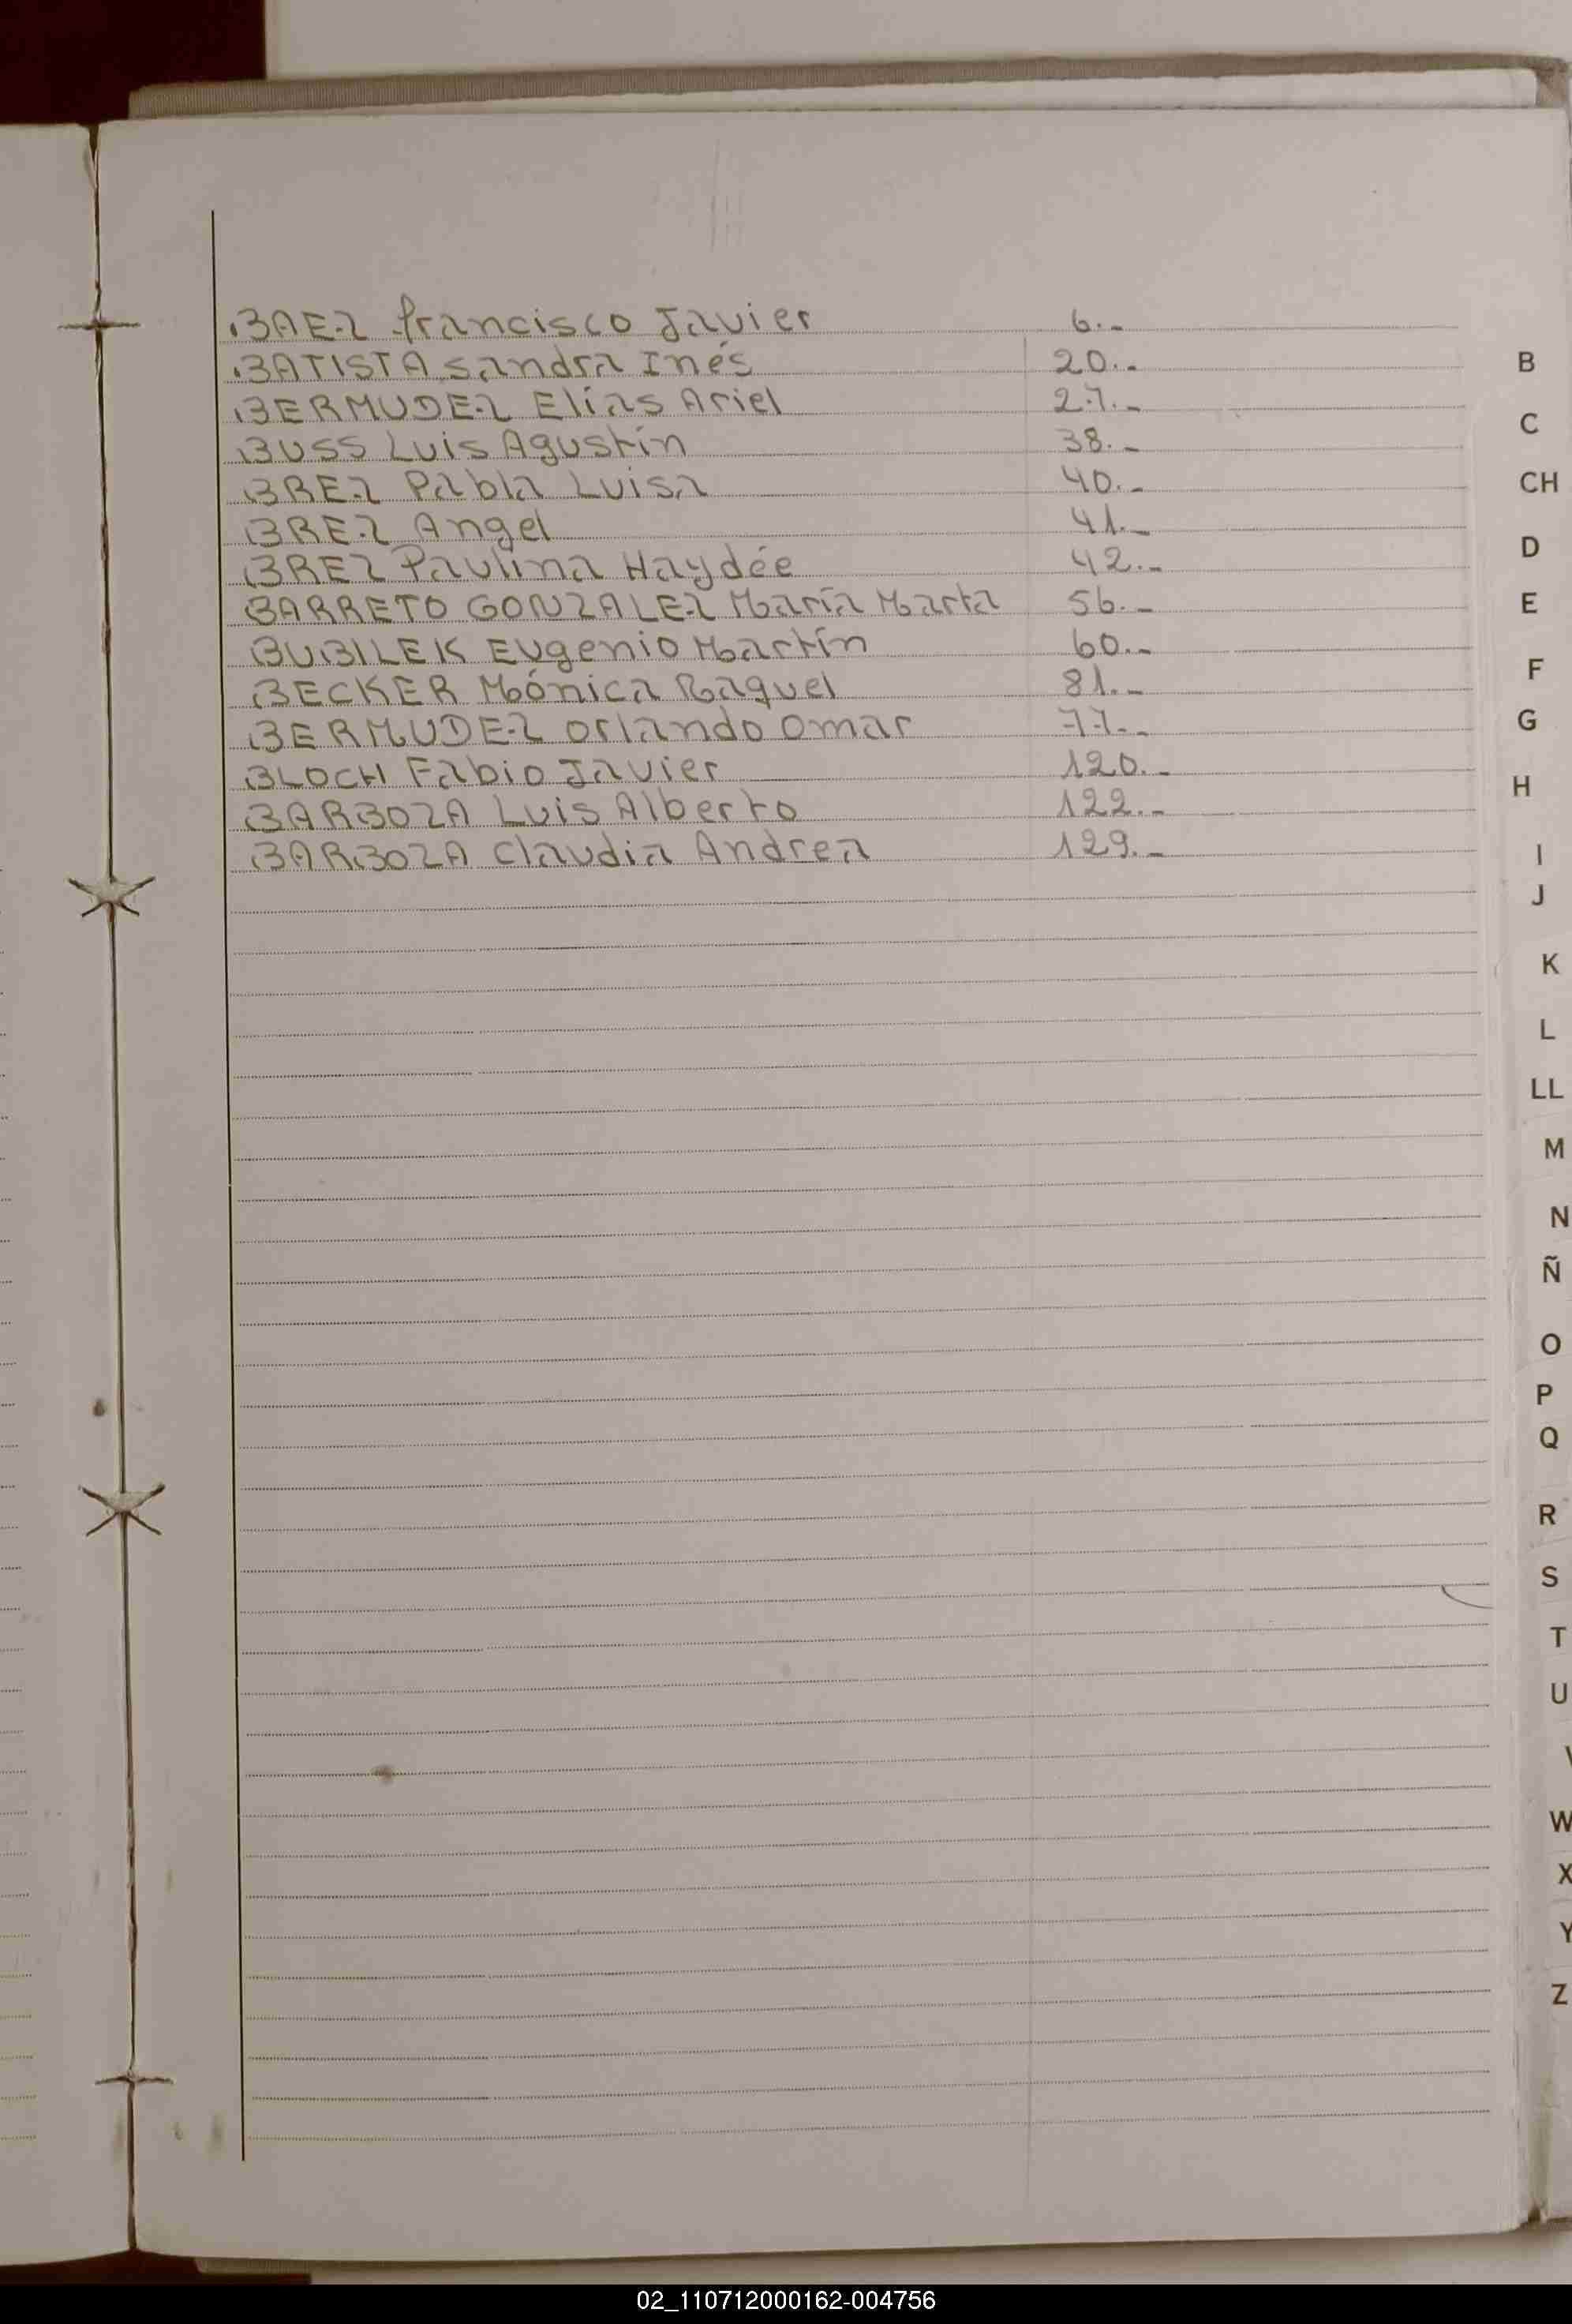 BAEZ Francisco Javier 6.-
BATISTA Sandra Inés 20.-
BERMUDEZ Elías Ariel 27.-
BUSS Luis Agustín 38.-
BREZ Pabla Luisa 40.-
BREZ Angel 41.-
BREZ Paulina Haydée 42.-
BARRETO GONZALEZ María Marta 56.-
BUBILEK Eugenio Martín 60.-
BECKER Mónica Raquel 81.-
BERMUDEZ Orlando Omar 77.-
BLOCH Fabio Javier 120.-
BARBOZA Luis Alberto 122.-
BARBOZA Claudia Andrea 129.-
B
C
CH
D
E
F
G
H
I
J
K
L
LL
M
N
Ñ
O
P
Q
R
S
T
U
W
X
Y
Z
02_110712000162-004756